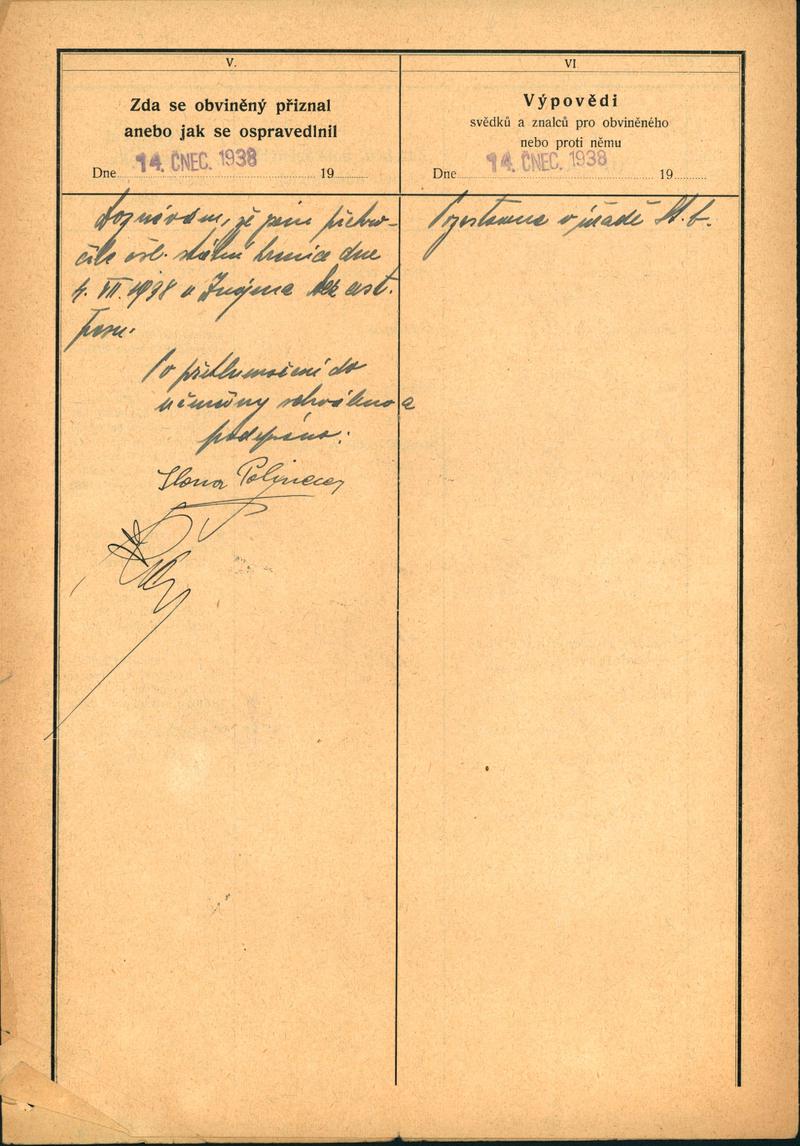 V.
Zda se obviněný přiznal
anebo jak se ospravedlnil
Dne 14. ČNEC. 1938 19
Doznávám, že jsem překro-
čila čsl. státní hranice dne
4. VII. 1938 u Znojma bez cest.
pasu.
Po přetlumočení do
němčiny schváleno a
podepsáno:
Ilona
VI
Výpovědi
svědků a znalců pro obviněného
nebo proti němu
Dne 14. ČNEC. 1938 19
v úřadě